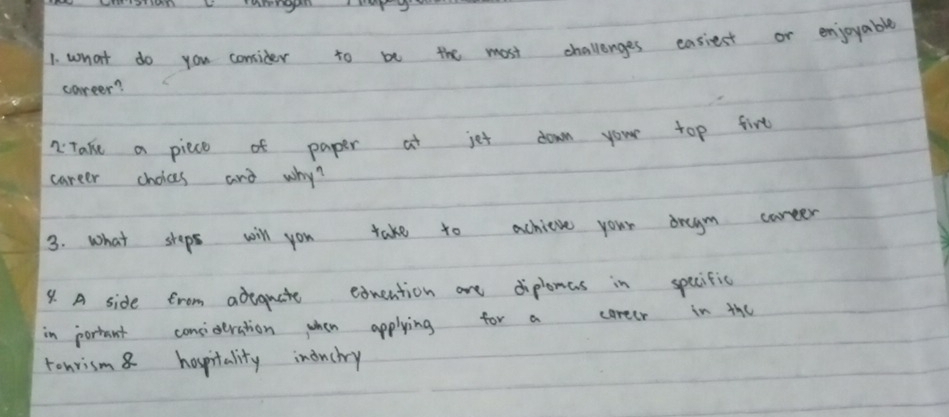 1. What do you consider to be the most challenges easiest or enjoyable
career?
2. Take a piece of paper at jet down your top five
career choices and why?
3. What steps will you take to achieve your dream career
4. A side from adequate education are diplomas in specific
in portant consideration, when applying for a career in the
tourism & hospitality indnctry